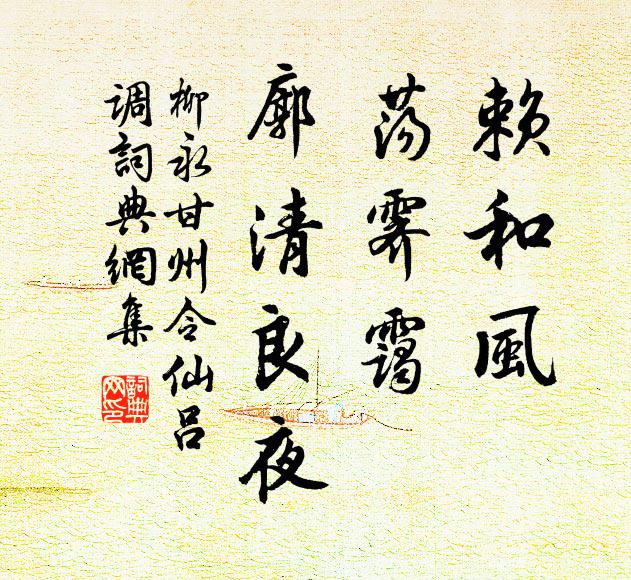 賴和風
蕩霽靄
廓清良夜
柳永甘州令仙呂
調詞典網集
詞典
网印